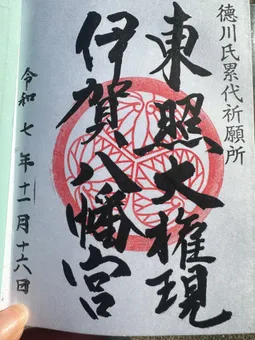 徳川氏累代祈願所
東照大権現
伊賀八幡宮
令和七年十一月十六日